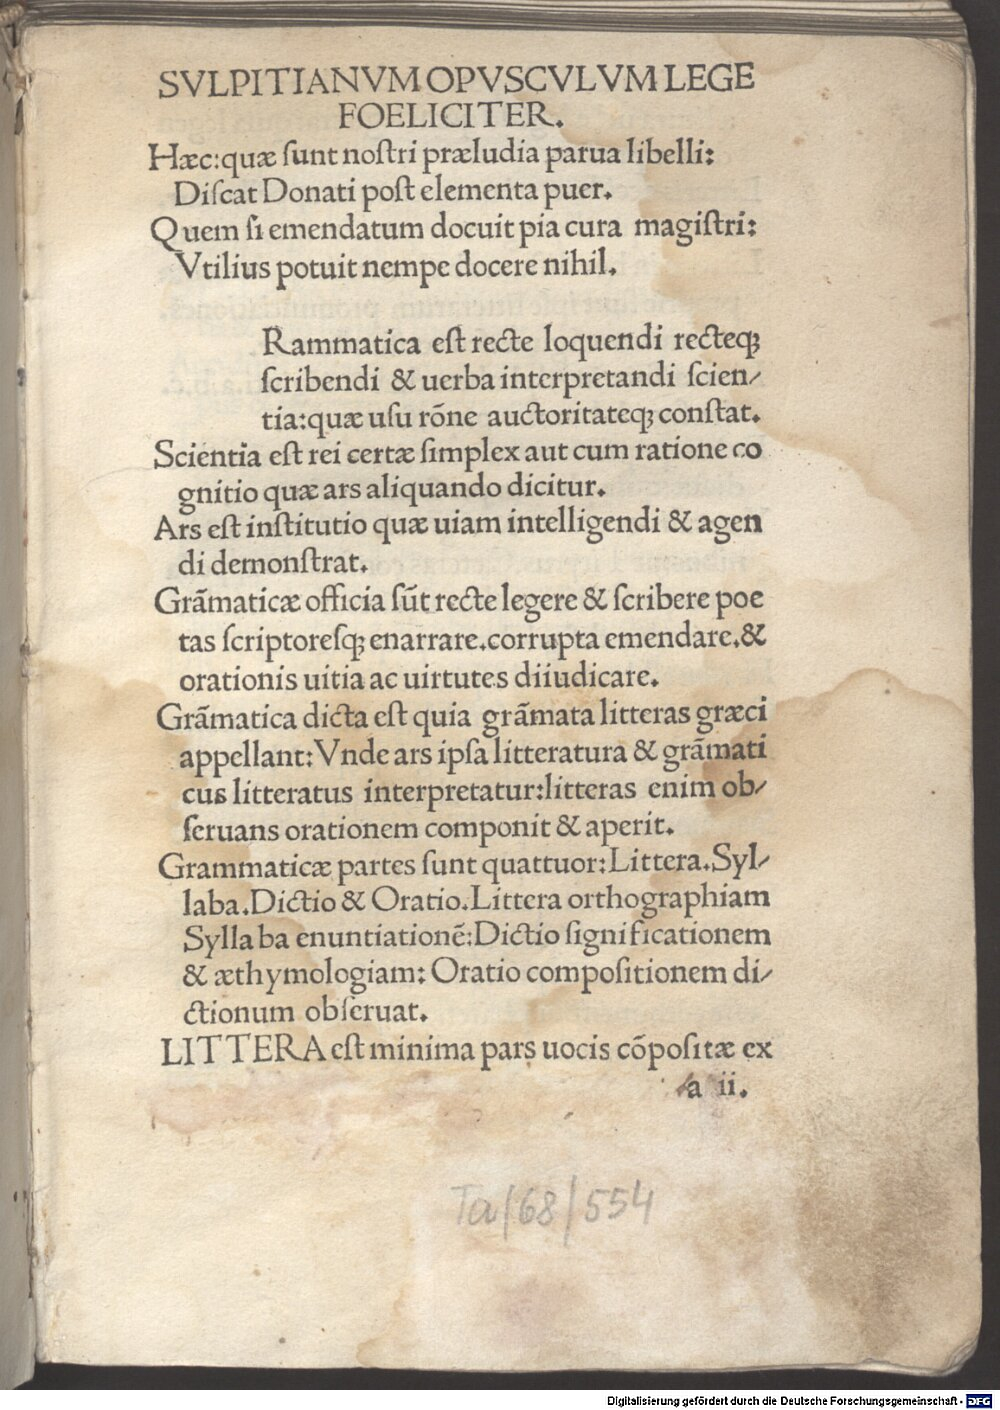 SVLPITIANVM OPVSCVLVM LEGE
FOELICITER.
Hæc: quæ ſunt noſtri præludia parua libelli:
Diſcat Donati poſt elementa puer.
Quem ſi emendatum docuit pia cura magiſtri:
Vtilius potuit nempe docere nihil.
Rammatica eſt recte loquendi recteqꝫ
ſcribendi & uerba interpretandi ſcien/
tia: quæ uſu rōne auctoritateqꝫ conſtat.
Scientia eſt rei certæ ſimplex aut cum ratione co
gnitio quæ ars aliquando dicitur.
Ars eſt inſtitutio quæ uiam intelligendi & agen
di demonſtrat.
Grãmaticæ officia ſũt recte legere & ſcribere poe
tas ſcriptoreſqꝫ enarrare. corrupta emendare. &
orationis uitia ac uirtutes diiudicare.
Grãmatica dicta eſt quia grãmata litteras græci
appellant: Vnde ars ipſa litteratura & grãmati
cus litteratus interpretatur: litteras enim ob/
ſeruans orationem componit & aperit.
Grammaticæ partes ſunt quattuor: Littera. Syl/
laba. Dictio & Oratio. Littera orthographiam
Syllaba enuntiationẽ: Dictio ſignificationem
& æthymologiam: Oratio compoſitionem di/
ctionum obſeruat.
LITTERA eſt minima pars uocis cõpoſitæ ex
a ii.
Ta/68/554
Digitalisierung gefördert durch die Deutsche Forschungsgemeinschaft - DFG